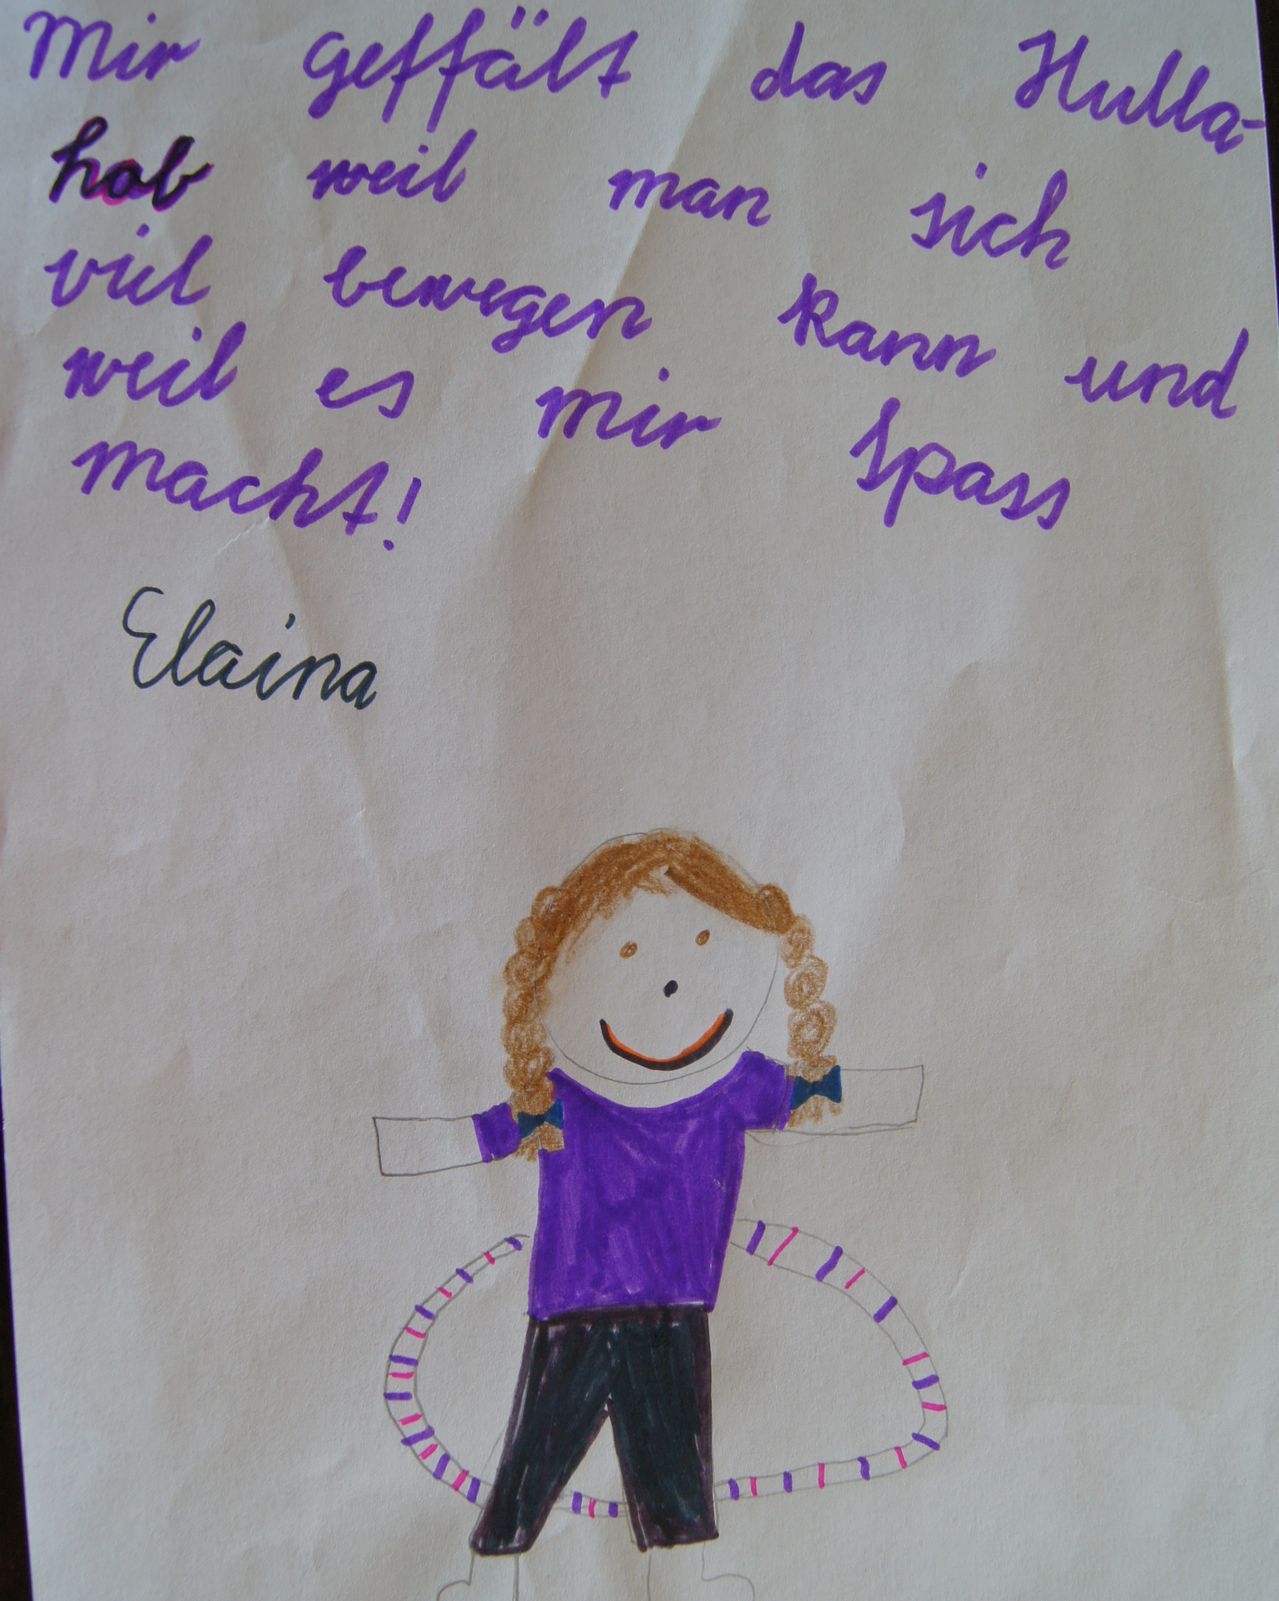 Mir geffält das Hulla-
hob weil man sich
viel bewegen kann und
weil es mir Spass
macht!
Elaina